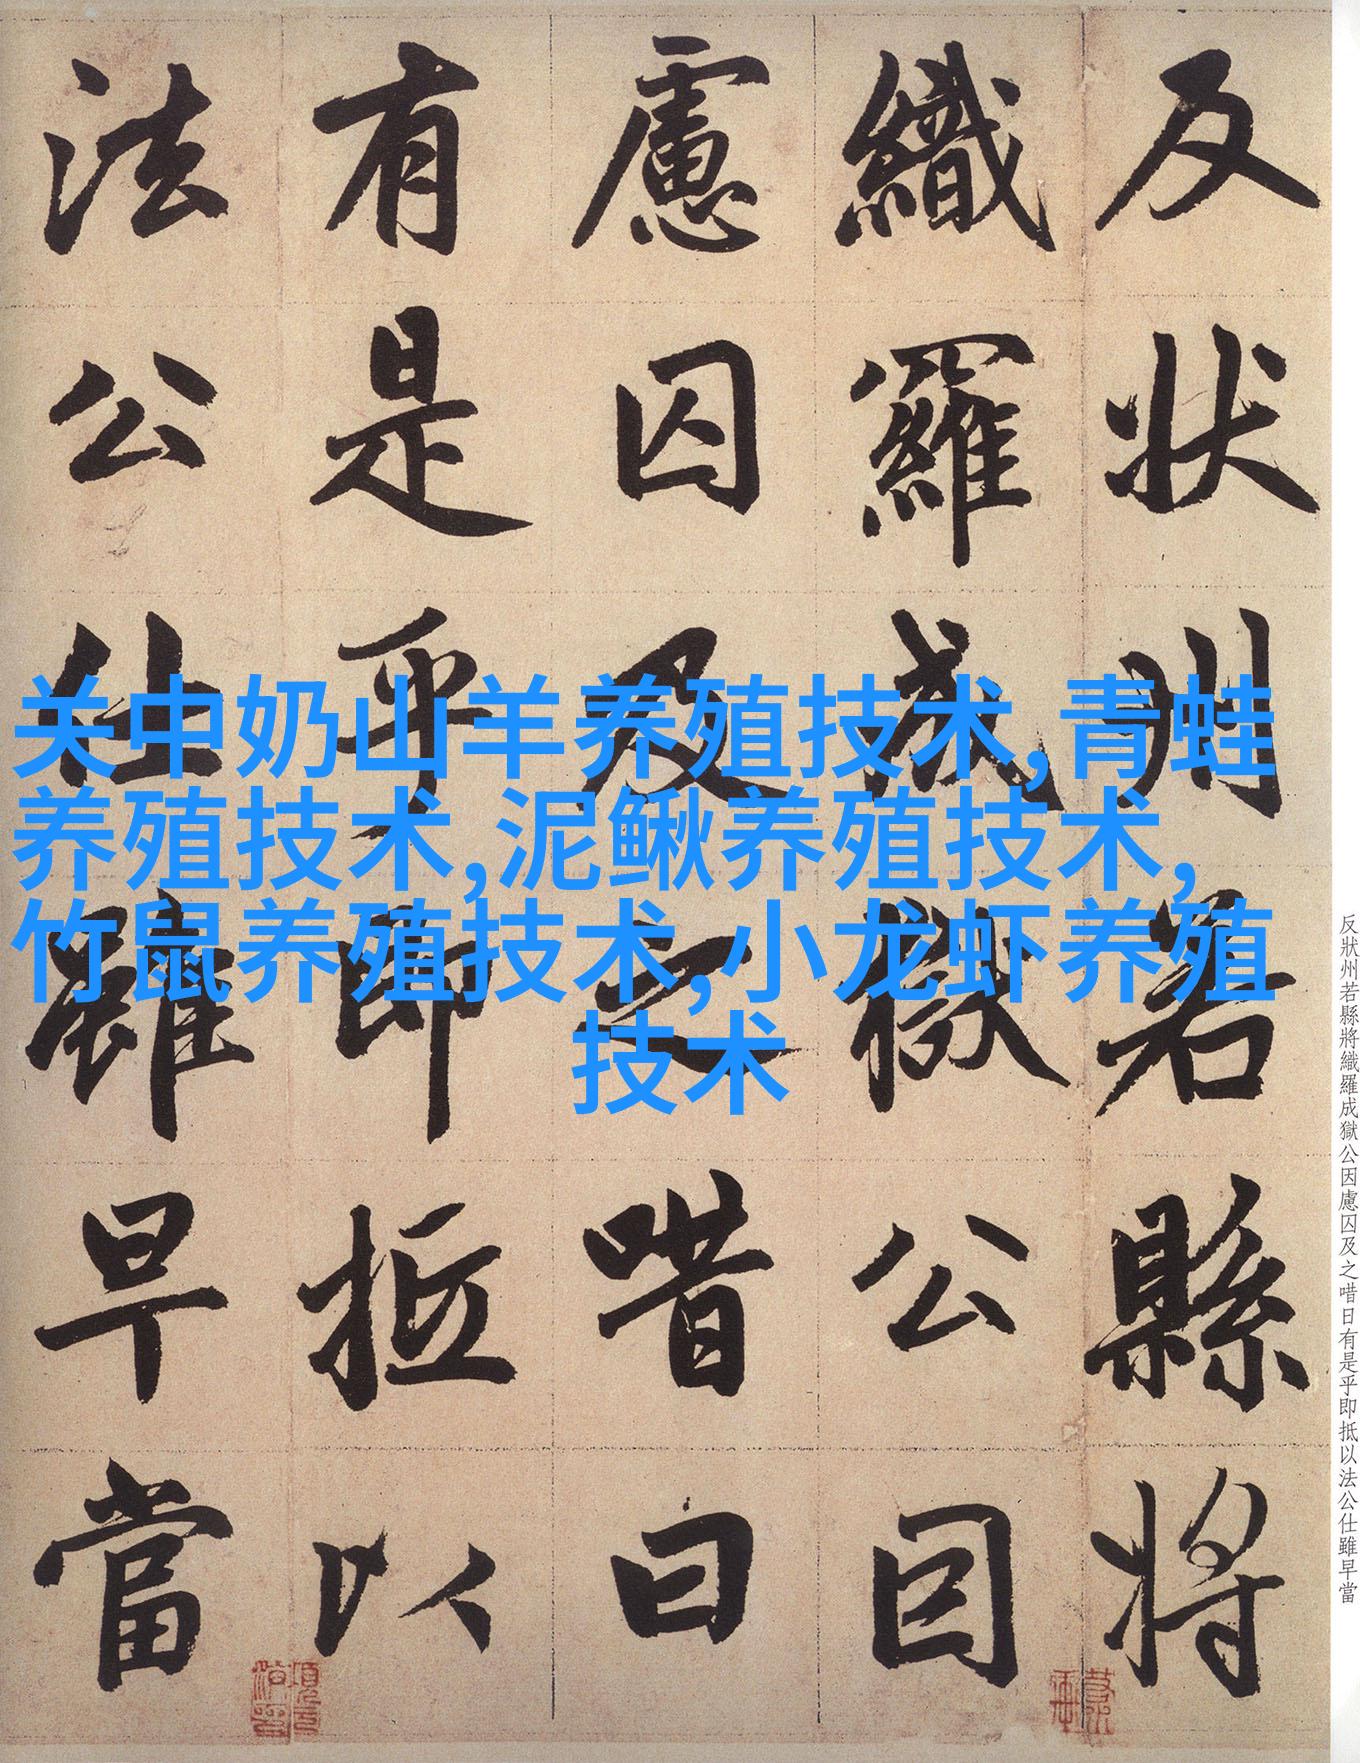 反状州若縣將
織羅成獄公因
慮囚及之唶曰
有是乎即抵以
法公仕雖早當
关中奶山羊养殖技术,青蛙
养殖技术,泥鳅养殖技术,
竹鼠养殖技术,小龙虾养殖
技术
反狀州若縣將織羅成獄公因慮囚及之唶日有是乎即抵以法公仕雖早當